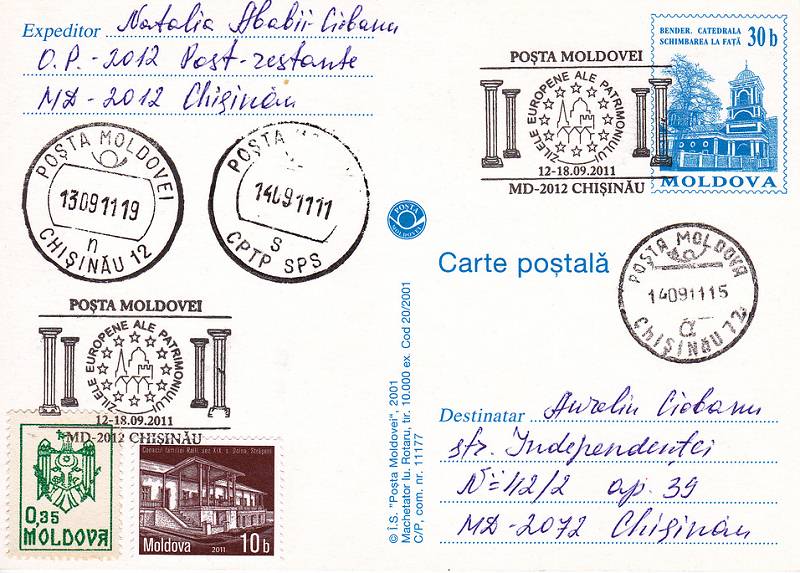 Expeditor Natalia Ababii-Ciobanu
O.P.-2012 Post-restante
MD-2012 Chişinău
POŞTA MOLDOVEI
130911 19
n
CHIŞINĂU 12
POŞTA M
140911 11
S
CPTP SPS
POŞTA MOLDOVEI
ZILELE EUROPENE ALE PATRIMONIULUI
12-18.09.2011
MD-2012 CHIŞINĂU
BENDER. CATEDRALA
SCHIMBAREA LA FAŢĂ 30 b
MOLDOVA
POŞTA
MOLDOVEI
Carte poştală
POŞTA MOLDOVA
140911 15
a
CHIŞINĂU 72
POŞTA MOLDOVEI
ZILELE EUROPENE ALE PATRIMONIULUI
12-18.09.2011
MD-2012 CHIŞINĂU
0,35
MOLDOVA
Conacul familiei Ralli, sec XIX, s. Dolna, Străşeni
Moldova 2011 10 b
© Î.S. "Poşta Moldovei", 2001
Machetator Iu. Rotaru, tir. 10.000 ex. Cod 20/2001
C/P, com. nr. 11177
Destinatar Aureliu Ciobanu
str. Independenţei
Nº 42/2 ap. 39
MD-2072 Chişinău